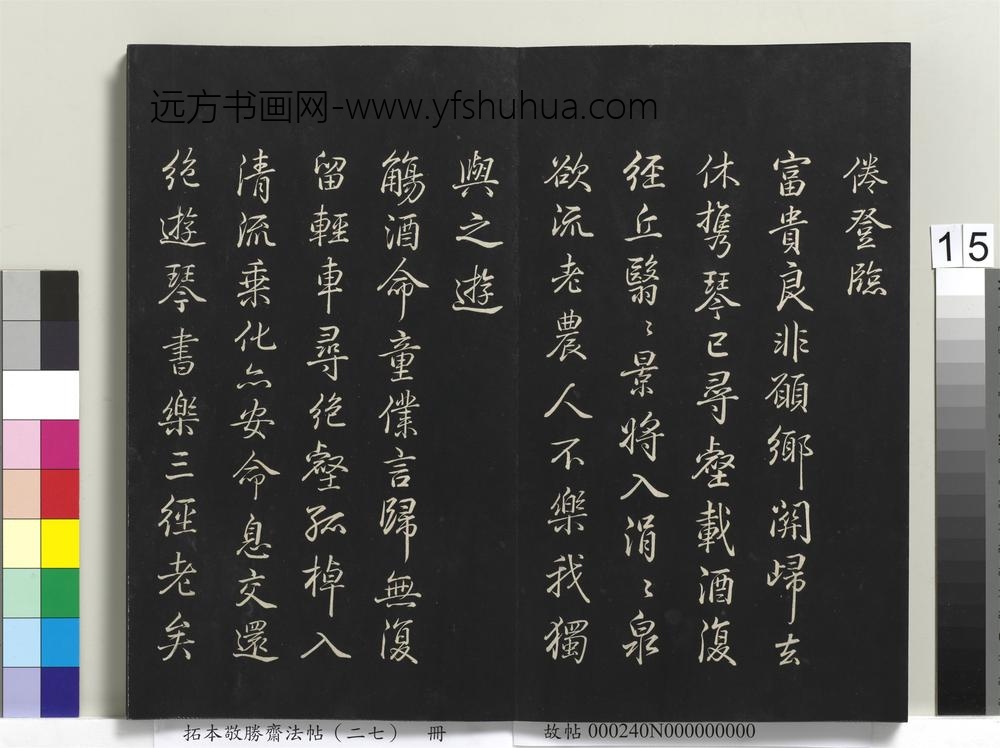 远方书画网-www.yfshuhua.com
倦登臨
富貴良非願鄉關歸去
休攜琴已尋壑載酒復
徑丘翳〻景將入涓〻泉
欲流老農人不樂我獨
與之遊
觴酒命童僕言歸無復
留輕車尋絕壑孤棹入
清流乘化亦安命息交還
絕遊琴書樂三徑老矣
15
拓本敬勝齋法帖（二七） 冊
故帖 000240N000000000